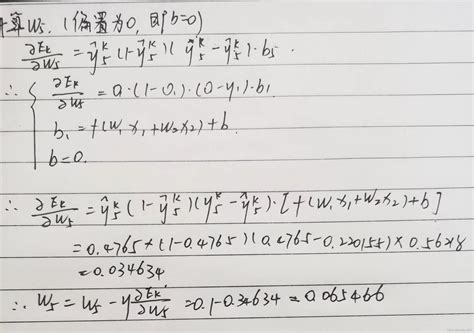 计算w₅. (偏置为0, 即b=0)
∂Eₖ/∂w₅ = ŷ₅ᵏ(1-ŷ₅ᵏ)(ŷ₅ᵏ-ŷ₅ᵏ)·b₅.
∴ { ∂Eₖ/∂w₅ = O·(1-O₁)·(O-y₁)·b₁
b₁ = f(w₁x₁+w₂x₂)+b.
b=0.
∴ ∂Eₖ/∂w₅ = ŷ₅ᵏ(1-ŷ₅ᵏ)(y₅ᵏ-ŷ₅ᵏ)·[f(w₁x₁+w₂x₂)+b]
=0.4765×(1-0.4765)(0.4765-0.220155)×0.5628
=0.034634
∴ w₅ = w₅-η∂Eₖ/∂w₅ =0.1-0.34634=0.065466